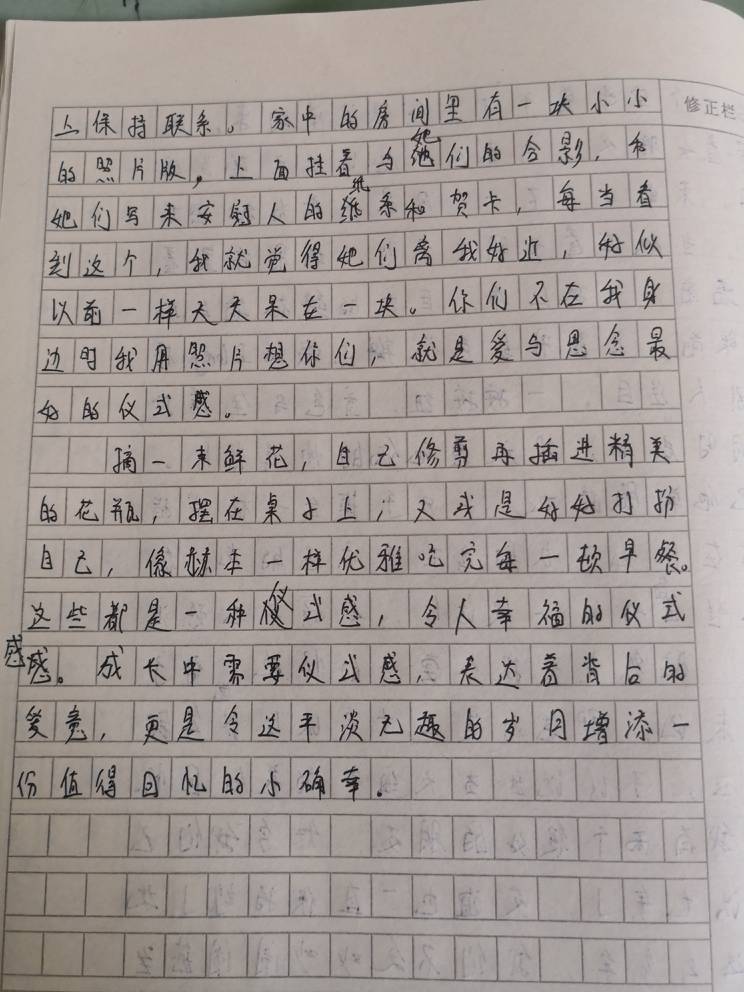 修正栏
上保持联系。家中的房间里有一块小小
的照片版，上面挂着与她们的合影，和
她们写来安慰人的纸条和贺卡，每当看
到这个，我就觉得她们离我好近，好似
以前一样天天呆在一块。你们不在我身
边时我用照片想你们，就是爱与思念最
好的仪式感。
摘一束鲜花，自己修剪再插进精美
的花瓶，摆在桌子上；又或是好好打扮
自己，像赫本一样优雅吃完每一顿早餐。
这些都是一种仪式感，令人幸福的仪式
感。成长中需要仪式感，表达着背后的
爱意，更是令这平淡无趣的岁月增添一
份值得回忆的小确幸。